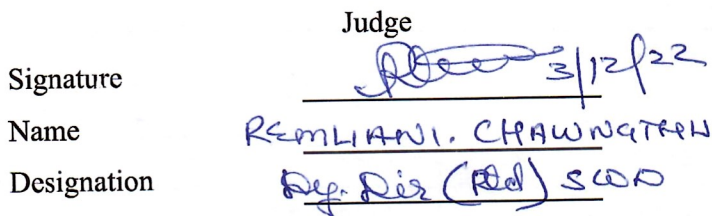 Judge
Signature 3/12/22
Name REMLIANI. CHAWNGTHU
Designation Dy. Dir (Rtd) SWD